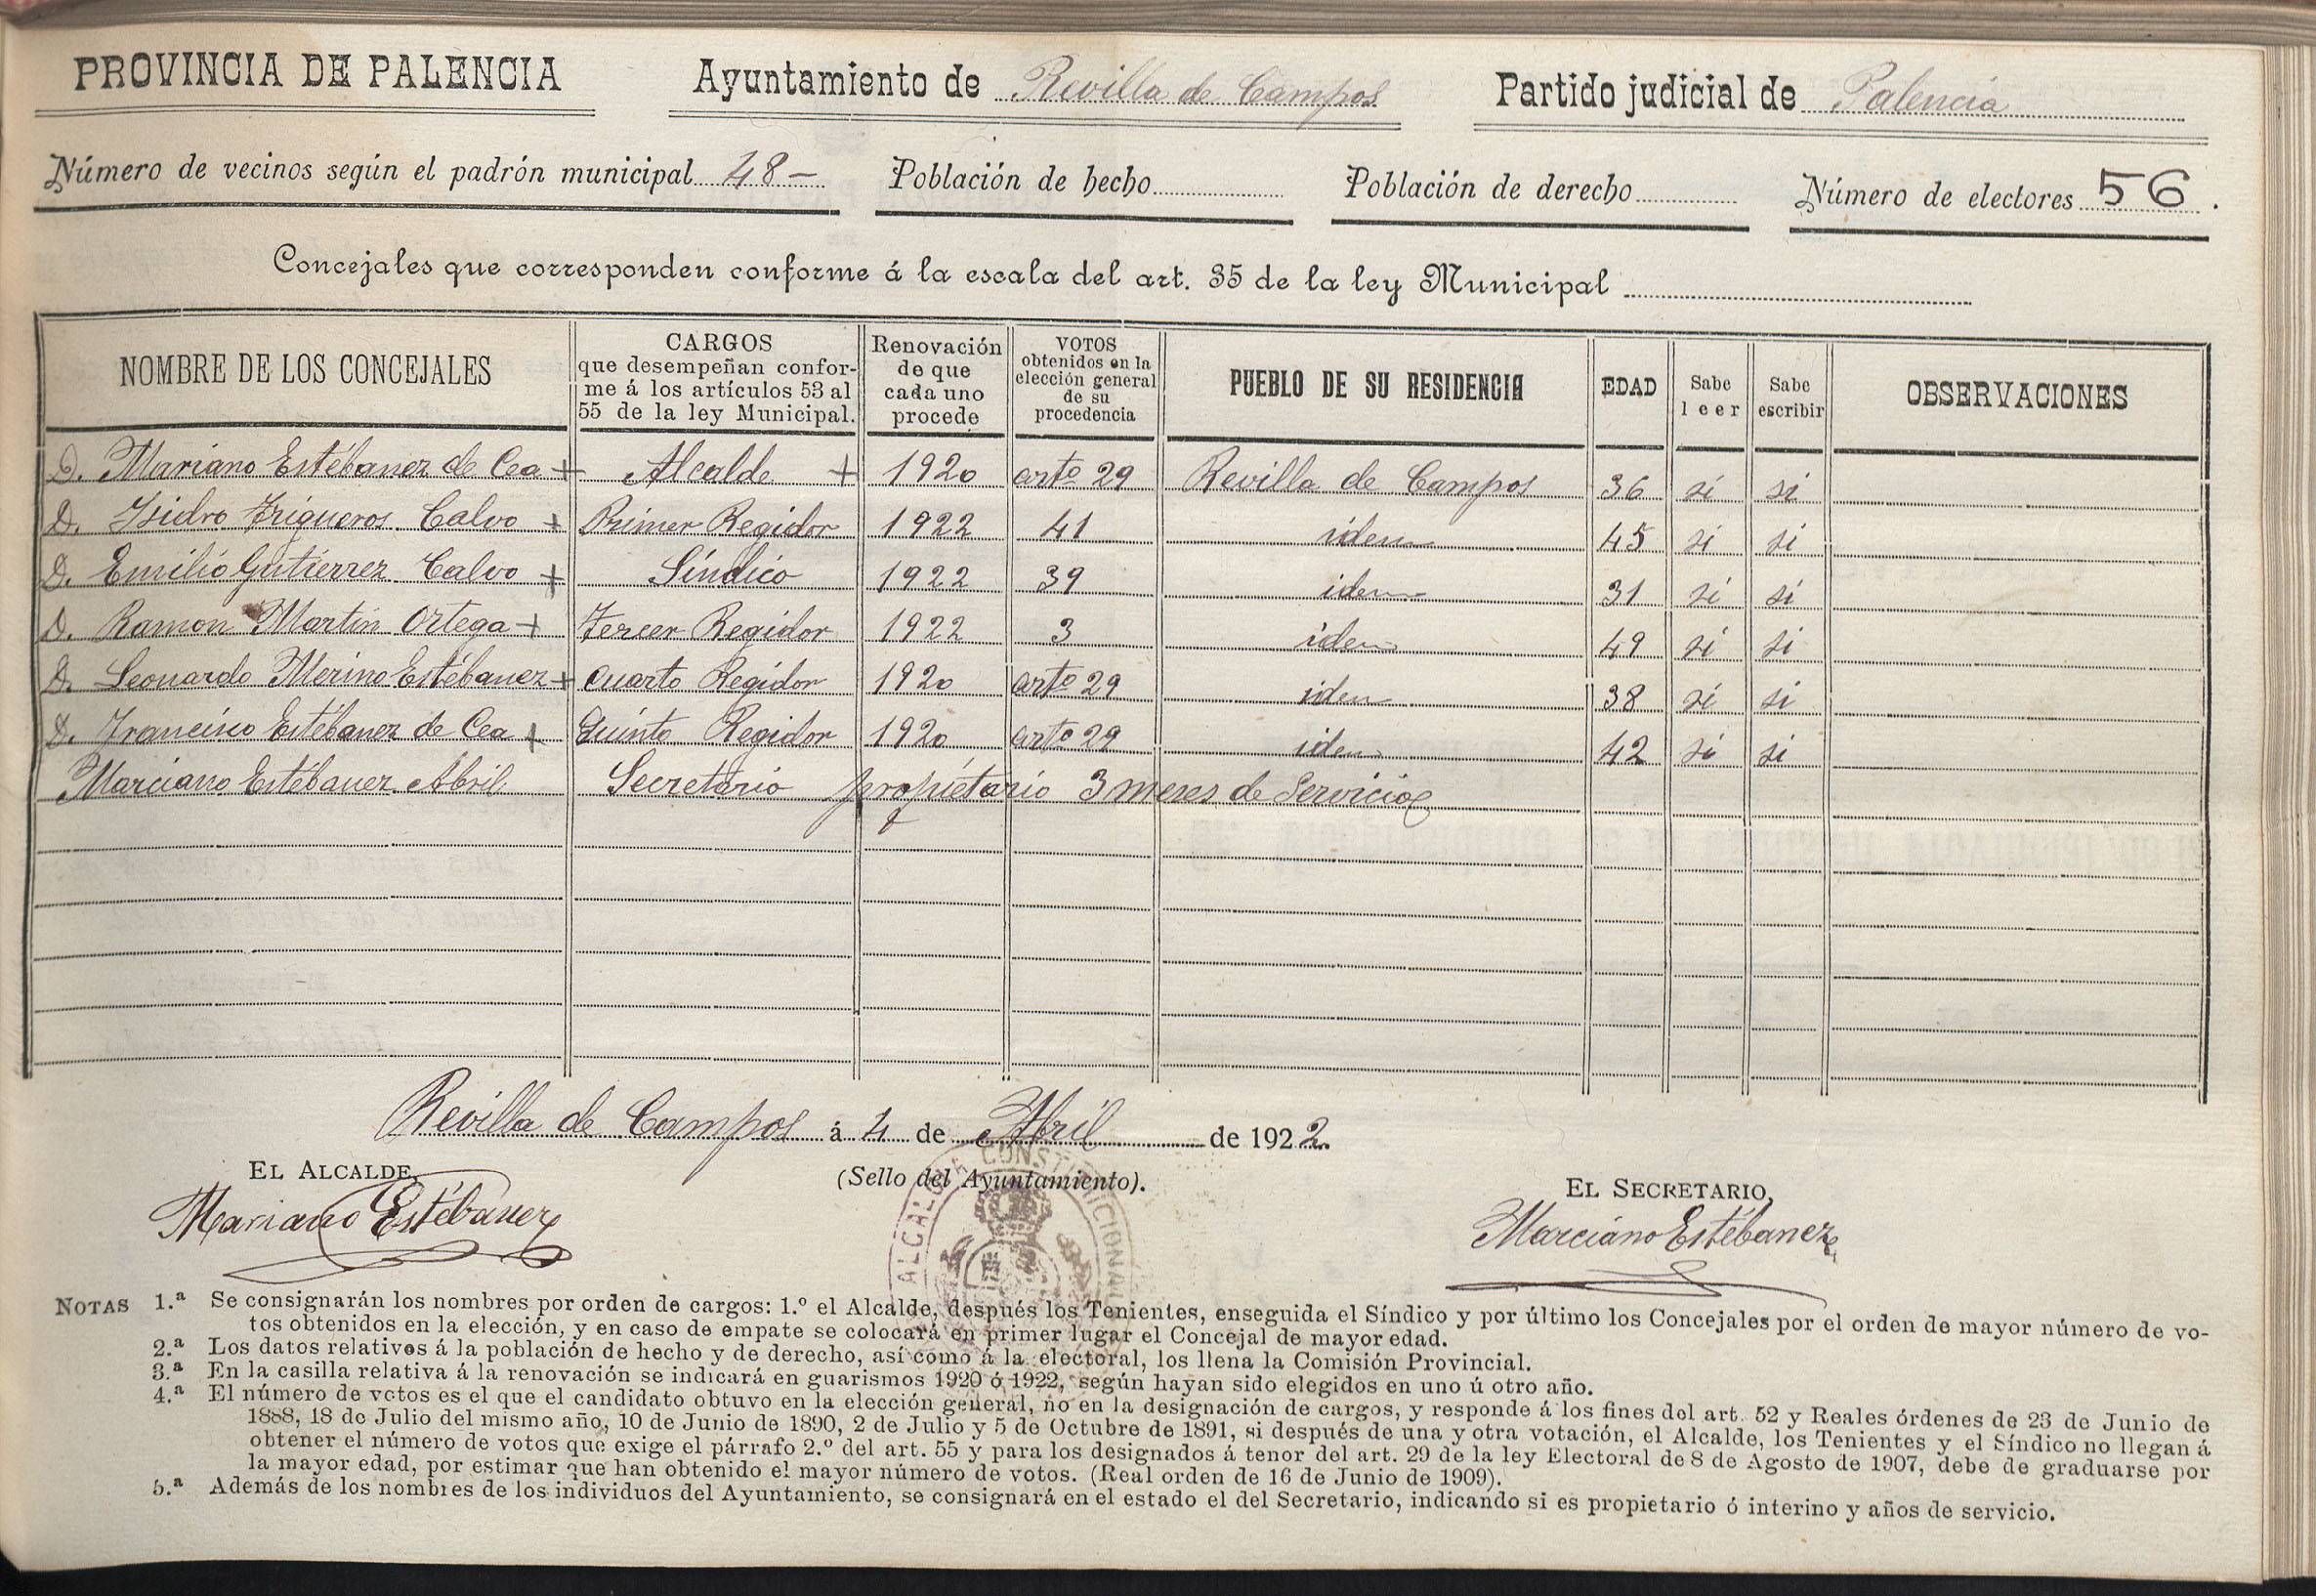 PROVINCIA DE PALENCIA Ayuntamiento de Revilla de Campos Partido judicial de Palencia
Número de vecinos según el padrón municipal 48- Población de hecho Población de derecho Número de electores 56.
Concejales que corresponden conforme á la escala del art. 35 de la ley Municipal
NOMBRE DE LOS CONCEJALES
CARGOS
que desempeñan confor-
me á los artículos 53 al
55 de la ley Municipal.
Renovación
de que
cada uno
procede
VOTOS
obtenidos en la
elección general
de su
procedencia
PUEBLO DE SU RESIDENCIA
EDAD
Sabe
leer
Sabe
escribir
OBSERVACIONES
D. Mariano Estébanez de Cea + Alcalde + 1920 artº 29 Revilla de Campos 36 si si
D. Isidro Trigueros Calvo + Primer Regidor 1922 41 idem 45 si si
D. Emilio Gutiérrez Calvo + Síndico 1922 39 idem 31 si si
D. Ramon Martín Ortega + Tercer Regidor 1922 3 idem 49 si si
D. Leonardo Merino Estébanez + Cuarto Regidor 1920 artº 29 idem 38 si si
D. Francisco Estébanez de Cea + Quinto Regidor 1920 artº 29 idem 42 si si
Marciano Estébanez Abril Secretario propietario 3 meses de Servicio
Revilla de Campos á 4 de Abril de 1922.
EL ALCALDE,
(Sello del Ayuntamiento).
EL SECRETARIO,
Mariano Estébanez
ALCALDIA CONSTITUCIONAL
Marciano Estébanez
NOTAS 1.ª Se consignarán los nombres por orden de cargos: 1.º el Alcalde, después los Tenientes, enseguida el Síndico y por último los Concejales por el orden de mayor número de vo-
tos obtenidos en la elección, y en caso de empate se colocará en primer lugar el Concejal de mayor edad.
2.ª Los datos relativos á la población de hecho y de derecho, así como á la electoral, los llena la Comisión Provincial.
3.ª En la casilla relativa á la renovación se indicará en guarismos 1920 ó 1922, según hayan sido elegidos en uno ú otro año.
4.ª El número de votos es el que el candidato obtuvo en la elección general, no en la designación de cargos, y responde á los fines del art. 52 y Reales órdenes de 23 de Junio de
1888, 18 de Julio del mismo año, 10 de Junio de 1890, 2 de Julio y 5 de Octubre de 1891, si después de una y otra votación, el Alcalde, los Tenientes y el Síndico no llegan á
obtener el número de votos que exige el párrafo 2.º del art. 55 y para los designados á tenor del art. 29 de la ley Electoral de 8 de Agosto de 1907, debe de graduarse por
la mayor edad, por estimar que han obtenido el mayor número de votos. (Real orden de 16 de Junio de 1909).
5.ª Además de los nombres de los individuos del Ayuntamiento, se consignará en el estado el del Secretario, indicando si es propietario ó interino y años de servicio.